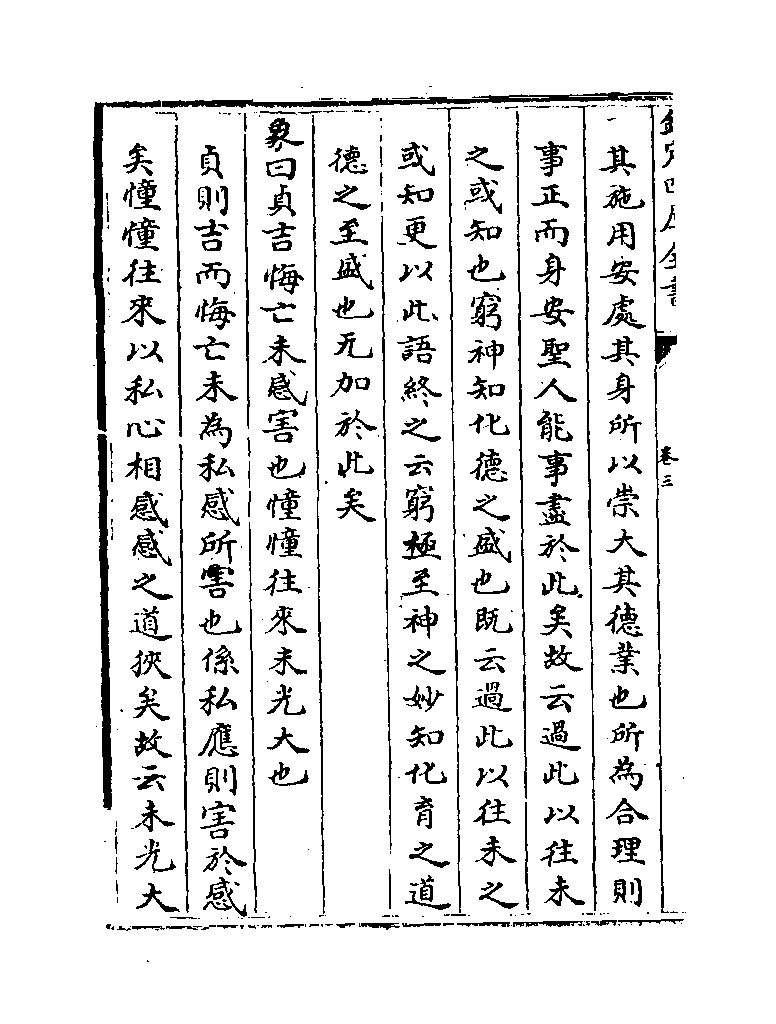 欽定四庫全書
卷三
其施用安處其身所以崇大其德業也所為合理則
事正而身安聖人能事盡於此矣故云過此以往未
之或知也窮神知化德之盛也既云過此以往未之
或知更以此語終之云窮極至神之妙知化育之道
德之至盛也无加於此矣
象曰貞吉悔亡未感害也憧憧往來未光大也
貞則吉而悔亡未為私感所害也係私應則害於感
矣憧憧往來以私心相感感之道狹矣故云未光大